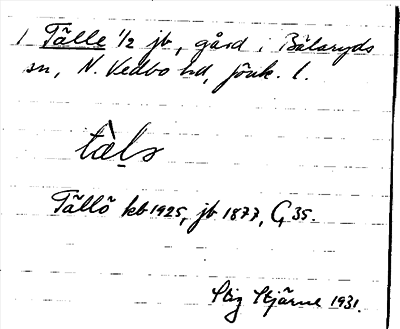 1 Tälle 1/2 jb, gård i Bälaryds
sn, N. Vedbo hd, Jönk. l.
tàl̥s
Tällö kb 1925, jb 1877, G 35.
Stig Stjärne 1931.